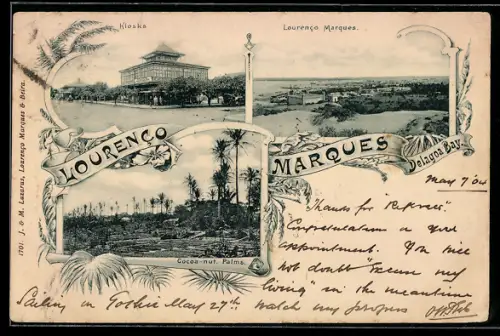 Kiosks
Lourenço Marques.
LOURENÇO
MARQUES
Delagoa Bay
Cocoa-nut Palms.
1701. J. & M. Lazarus, Lourenço Marques & Beira.
May 7'04
Thanks for
Congratulations on good
appointment. You will
not doubt "excuse my
living" in the meantime
Sailing in Gothic May 27th watch my